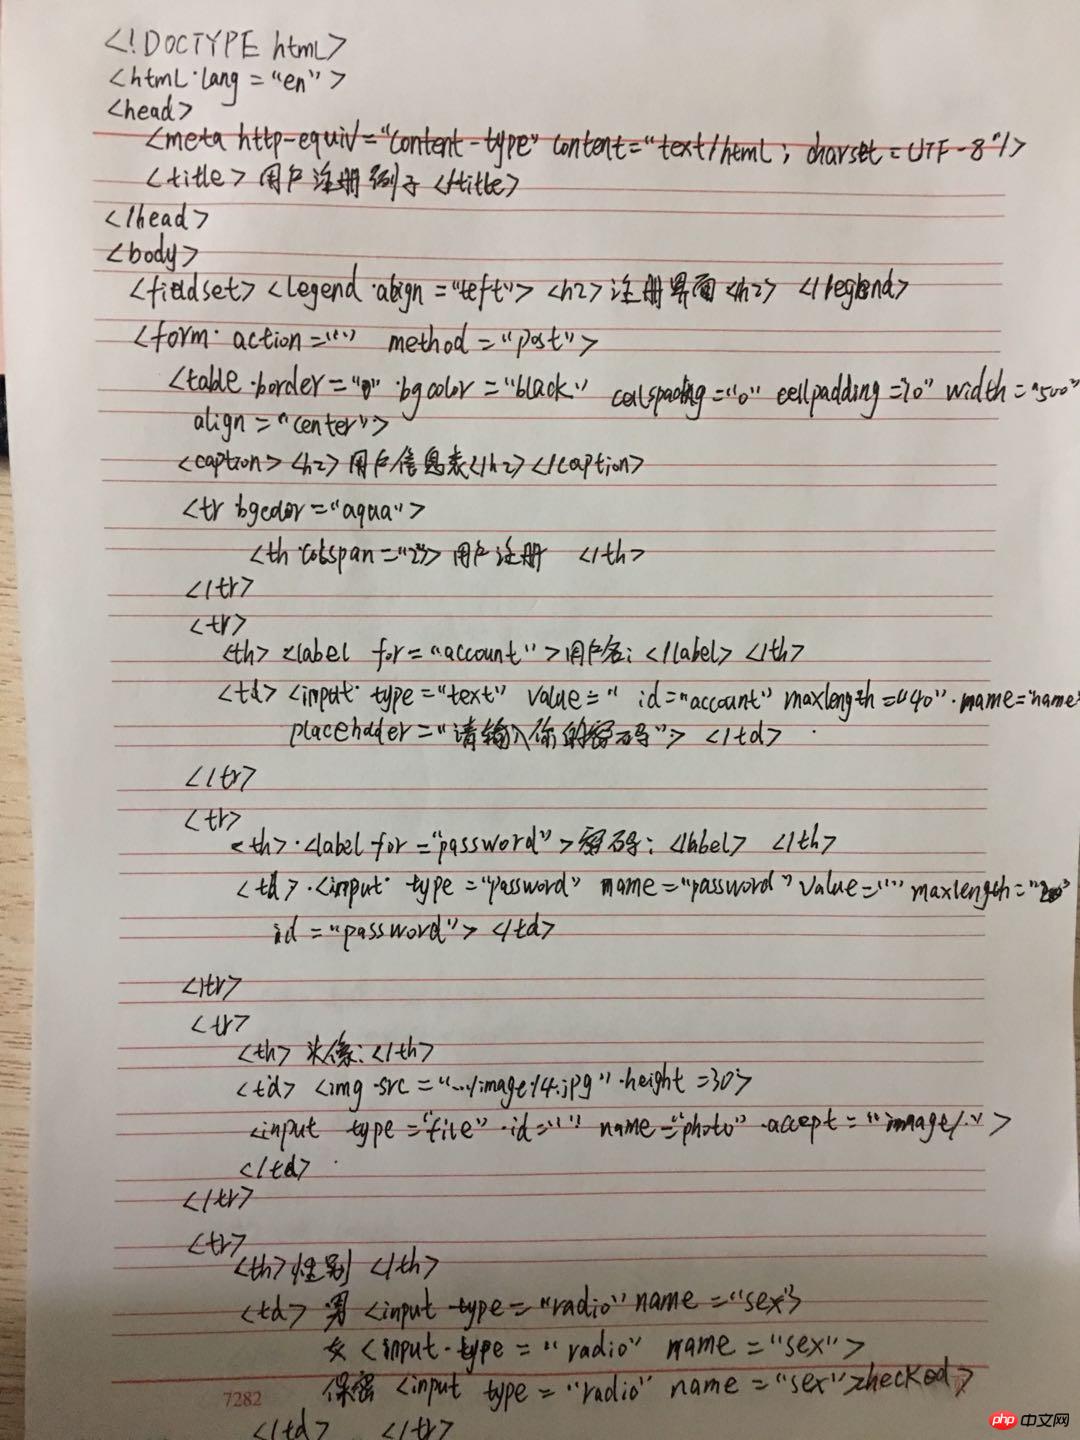 <!DOCTYPE html>
<html lang="en">
<head>
<meta http-equiv="content-type" content="text/html; charset=UTF-8"/>
<title>用户注册例子</title>
</head>
<body>
<fieldset><legend align="left"><h2>注册界面<h2></legend>
<form action="" method="post">
<table border="0" bgcolor="black" cellspacing="0" cellpadding="10" width="500"
align="center">
<caption><h2>用户信息表</h2></caption>
<tr bgcolor="aqua">
<th colspan="2">用户注册 </th>
</tr>
<tr>
<th><label for="account">用户名:</label></th>
<td><input type="text" value=" id="account" maxlength="40" name="name"
placeholder="请输入你的密码"></td>
</tr>
<tr>
<th><label for="password">密码:<label></th>
<td><input type="password" name="password" value="" maxlength="20"
id="password"></td>
</tr>
<tr>
<th>头像:</th>
<td><img src=".../image/4.jpg" height=30>
<input type="file" id="" name="photo" accept="image/.">
</td>
</tr>
<tr>
<th>性别</th>
<td>男<input type="radio" name="sex">
女<input type="radio" name="sex">
保密<input type="radio" name="sex">checked>
</td> </tr>
7282
php 中文网